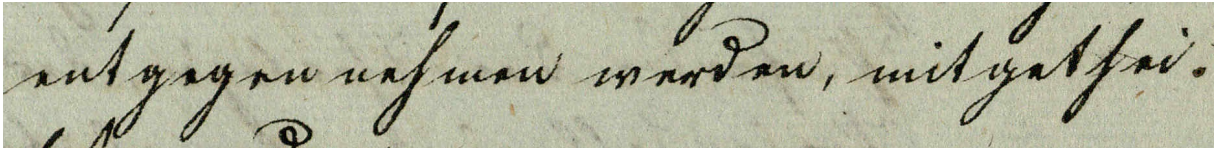 entgegen nehmen werden, mitgethei-